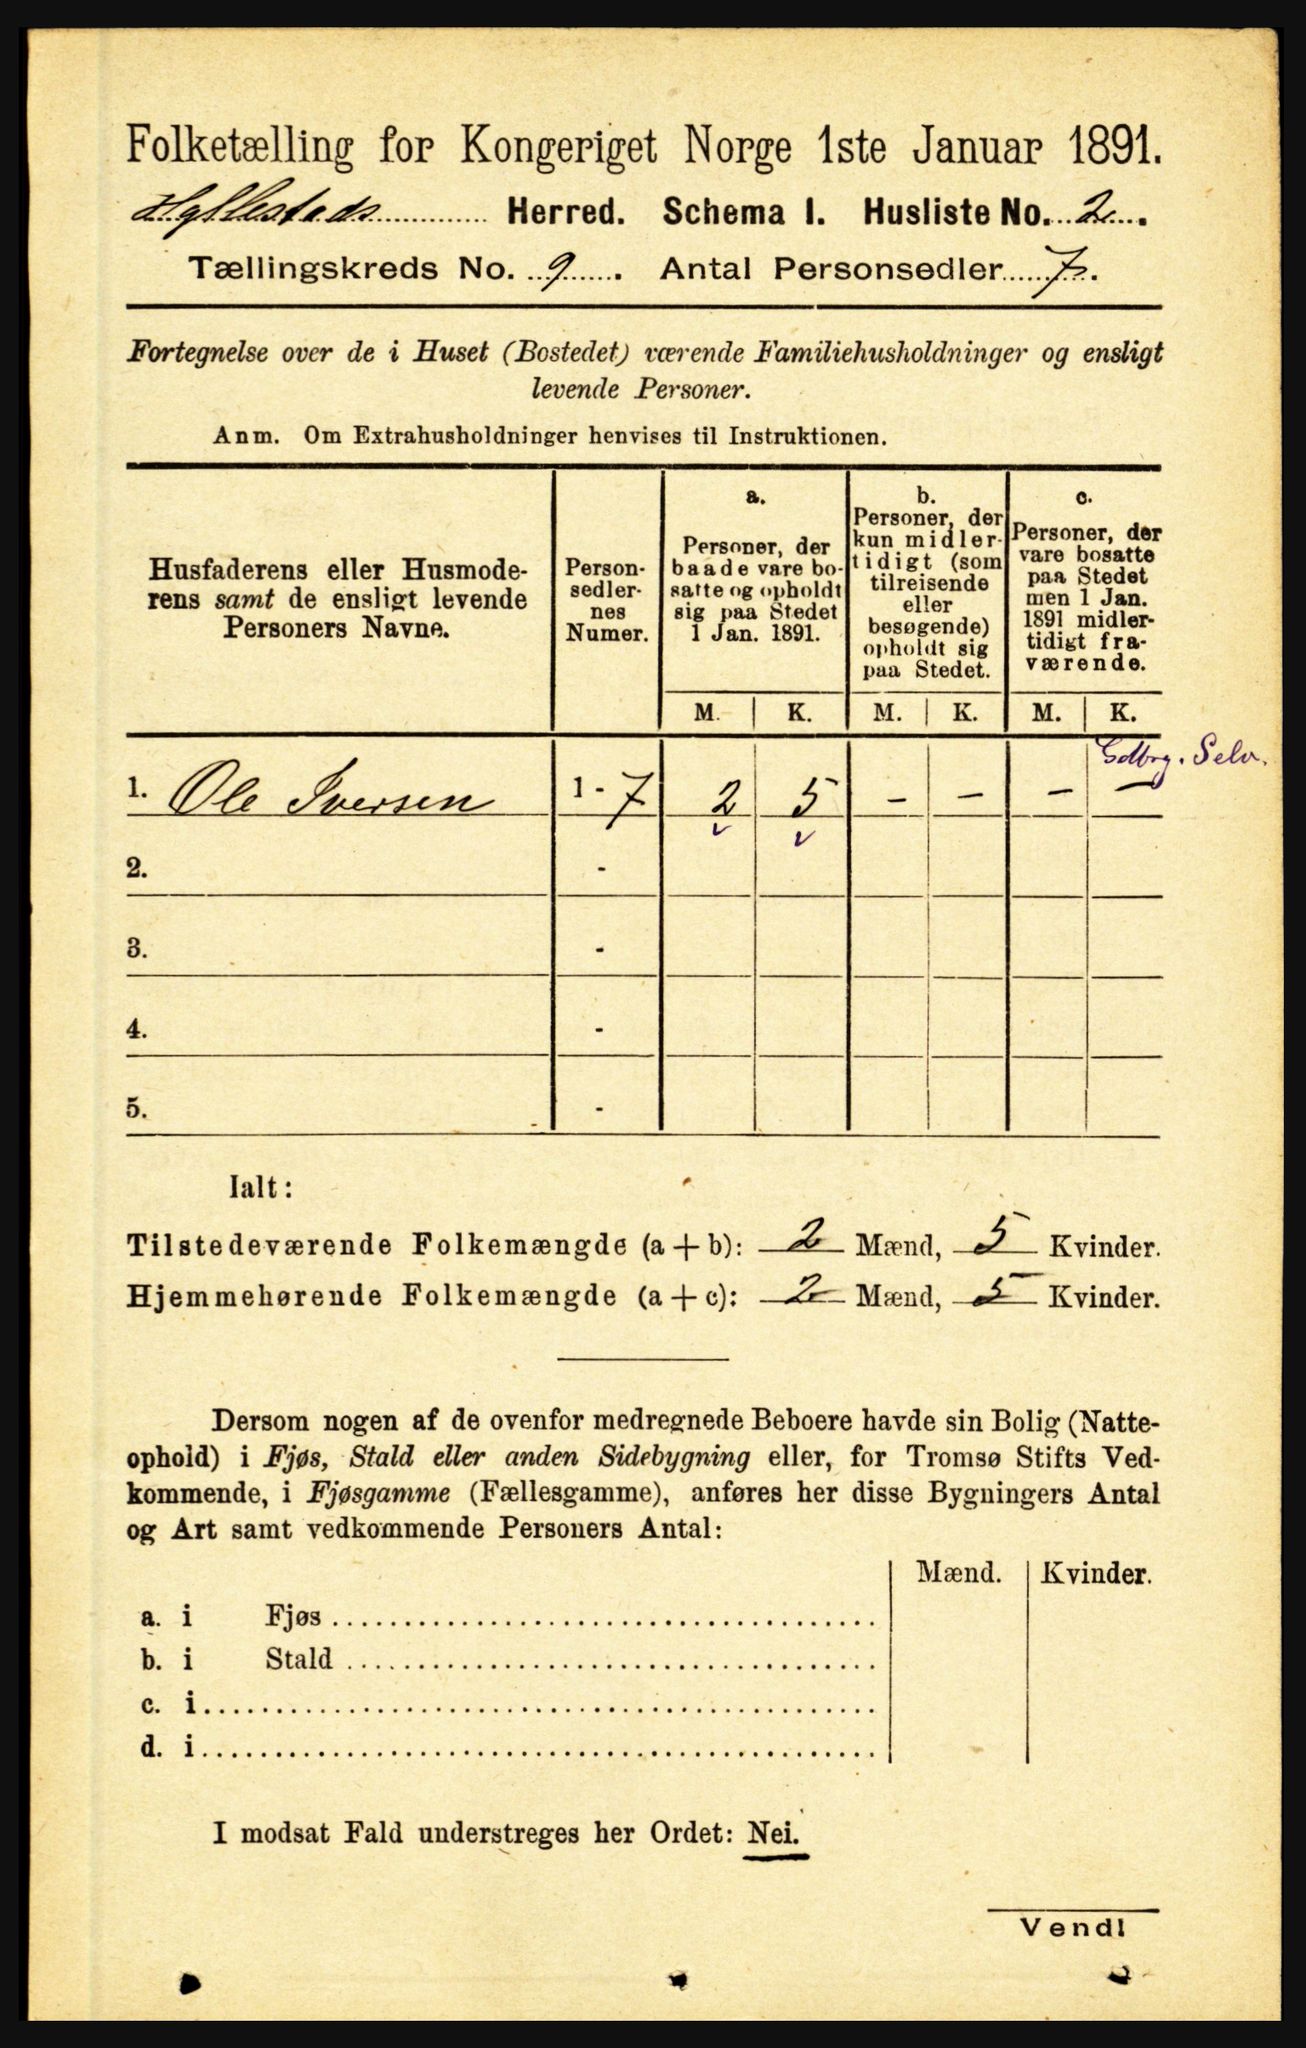 Folketælling for Kongeriget Norge 1ste Januar 1891.
Hyllestads Herred. Schema I. Husliste No. 2.
Tællingskreds No. 9. Antal Personsedler 7.
Fortegnelse over de i Huset (Bostedet) værende Familiehusholdninger og ensligt
levende Personer.
Anm. Om Extrahusholdninger henvises til Instruktionen.
Husfaderens eller Husmode-
rens samt de ensligt levende
Personers Navne.
Person-
sedler-
nes
Numer.
a.
Personer, der
baade vare bo-
satte og opholdt
sig paa Stedet
1 Jan. 1891.
b.
Personer, der
kun midler-
tidigt (som
tilreisende
eller
besøgende)
opholdt sig
paa Stedet.
c.
Personer, der
vare bosatte
paa Stedet
men 1 Jan.
1891 midler-
tidigt fra-
værende.
M. K. M. K. M. K.
Gdbrg. Selv.
1. Ole Iversen 1 - 7 2 5 - - - -
2. -
3. -
4. -
5. -
Ialt:
Tilstedeværende Folkemængde (a + b): 2 Mænd, 5 Kvinder.
Hjemmehørende Folkemængde (a + c): 2 Mænd, 5 Kvinder.
Dersom nogen af de ovenfor medregnede Beboere havde sin Bolig (Natte-
ophold) i Fjøs, Stald eller anden Sidebygning eller, for Tromsø Stifts Ved-
kommende, i Fjøsgamme (Fællesgamme), anføres her disse Bygningers Antal
og Art samt vedkommende Personers Antal:
Mænd. Kvinder.
a. i Fjøs
b. i Stald
c. i
d. i
I modsat Fald understreges her Ordet: Nei.
Vend!